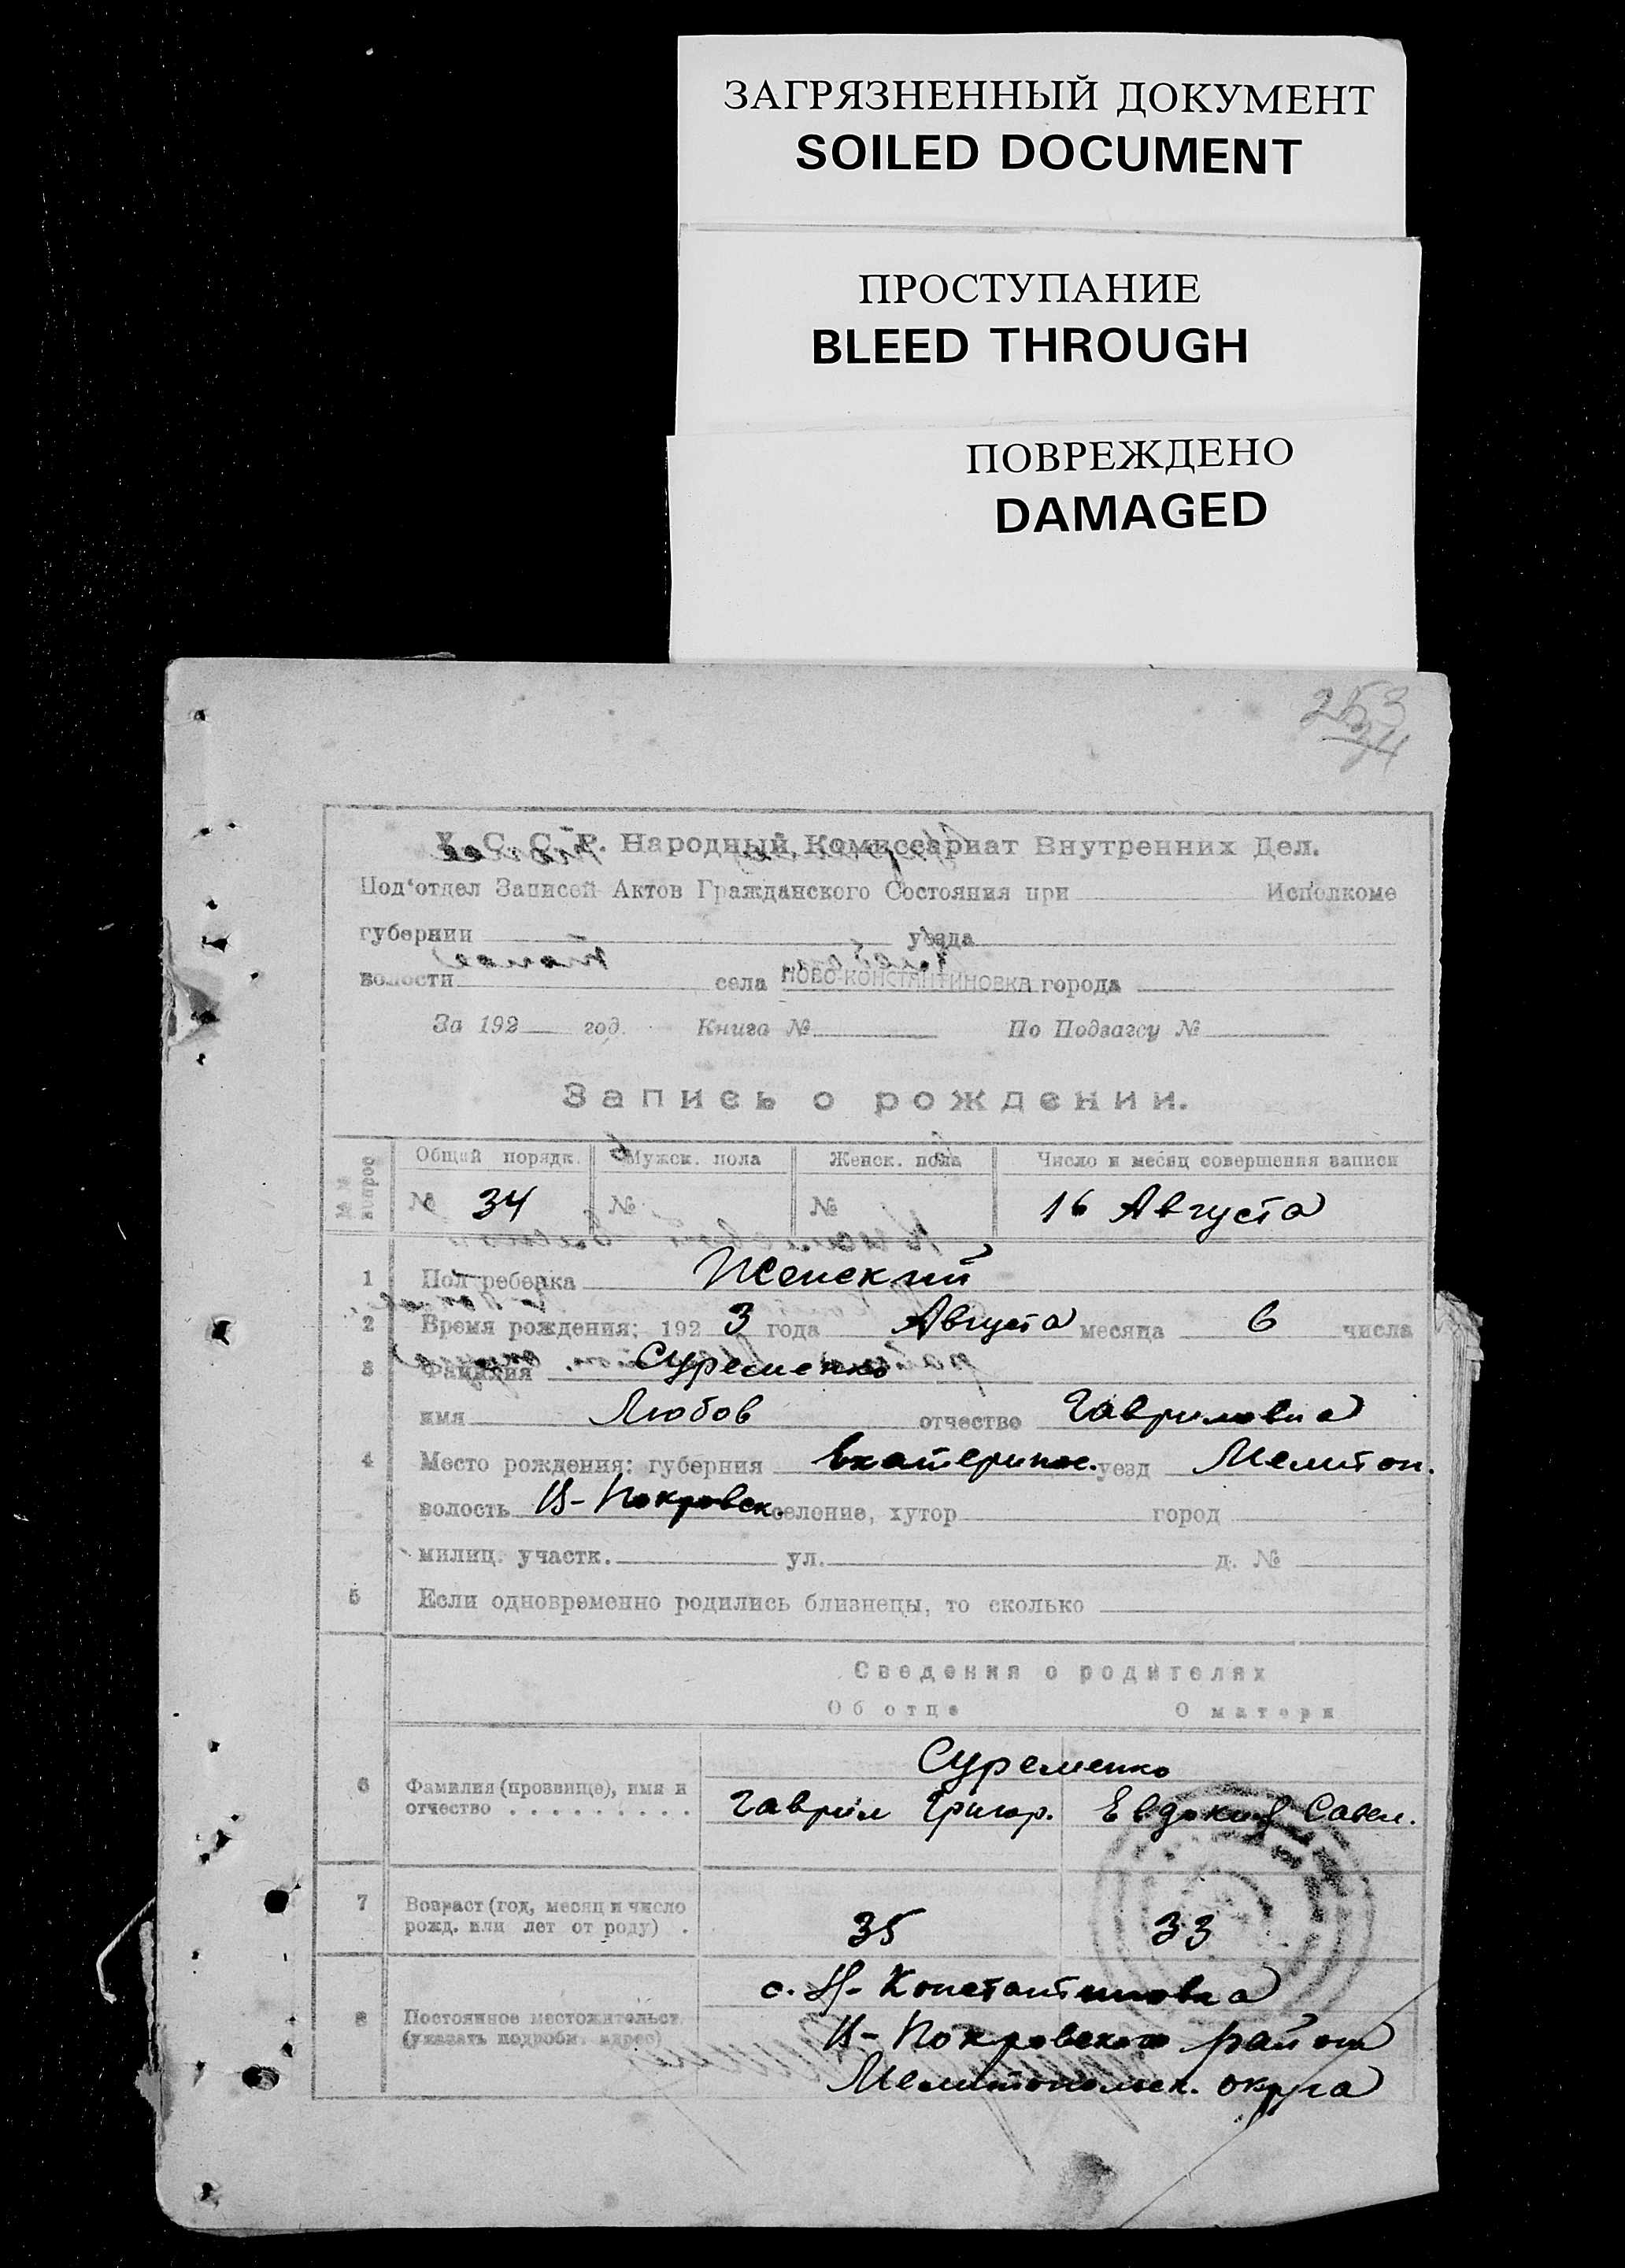 ЗАГРЯЗНЕННЫЙ ДОКУМЕНТ
SOILED DOCUMENT
ПРОСТУПАНИЕ
BLEED THROUGH
ПОВРЕЖДЕНО
DAMAGED
253
34
У. С. С. Р. Народный Комиссариат Внутренних Дел.
Под'отдел Записей Актов Гражданского Состояния при Исполкоме
губернии уезда
волости села НОВО-КОНСТАНТИНОВКА города
За 192 год. Книга № По Подзагсу №
Запись о рождении.
№№ вопрос Общий порядк. Мужск. пола Женск. пола Число и месяц совершения записи
№ 34 № № 16 Августа
1 Пол ребенка Женский
2 Время рождения: 192 3 года Августа месяца 6 числа
3 Фамилия Суременко
имя Любов отчество Гавриловна
4 Место рождения: губерния Екатеринос. уезд Мелитоп.
волость Ц-Покровск. селение, хутор город
милиц. участк. ул. д. №
5 Если одновременно родились близнецы, то сколько
Сведения о родителях
Об отце О матери
Суременко
6 Фамилия (прозвище), имя и
отчество . . . . . . . . . Гаврил Григор. Евдокия Савел.
7 Возраст (год, месяц и число
рожд. или лет от роду) . 35 33
с. Н-Константиновка
8 Постоянное местожительст.
(указать подробн. адрес) Ц-Покровского района
Мелитопольск. округа